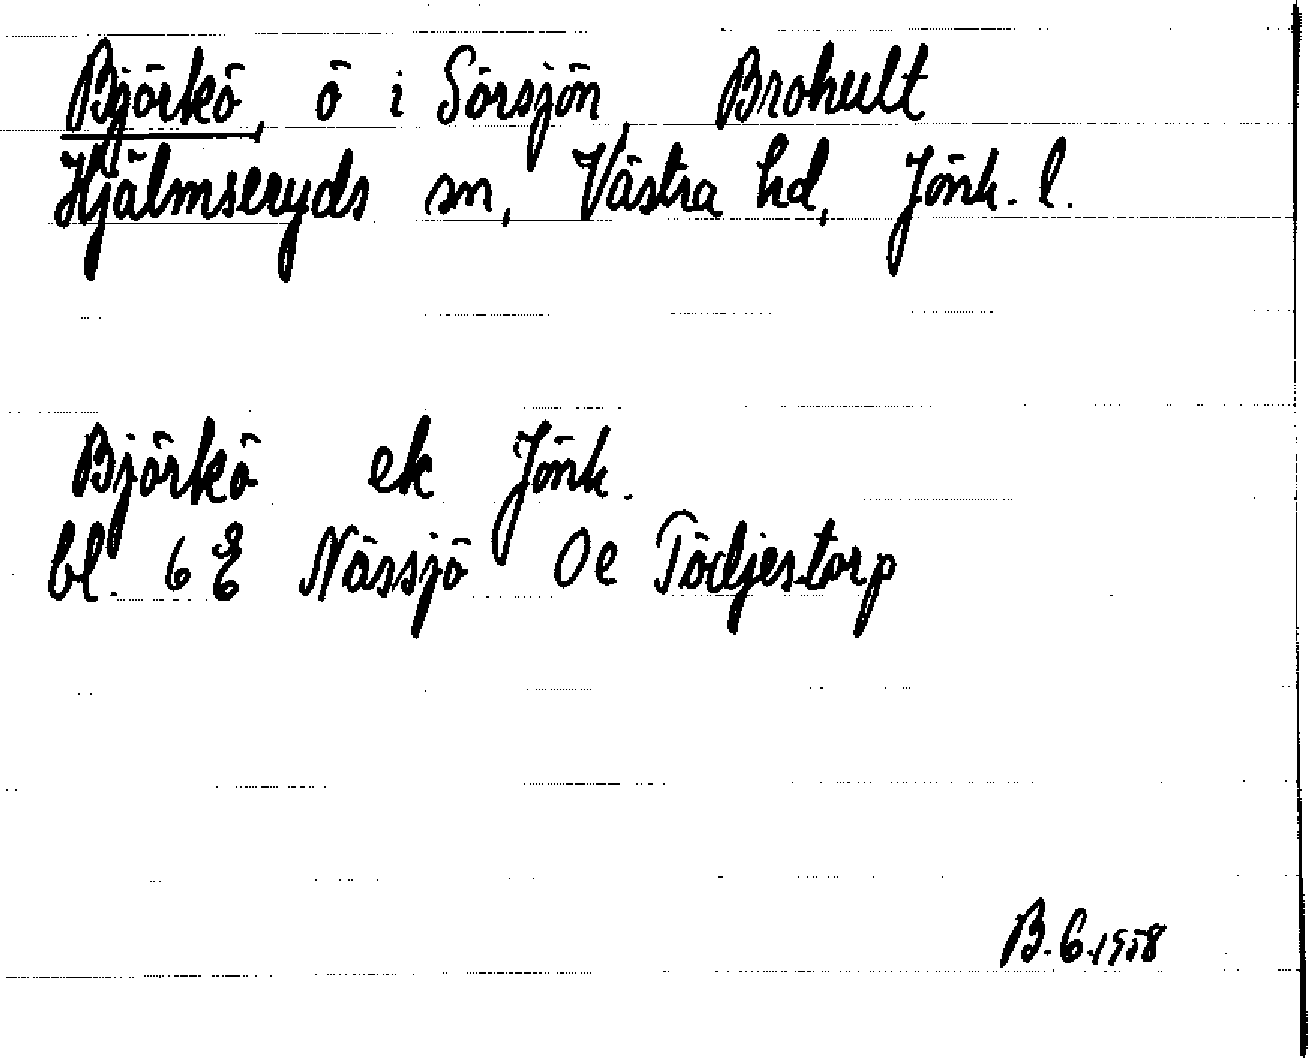 Björkö, ö i Sörsjön, Brohult
Hjälmseryds sn, Västra hd, Jönk. l.
Björkö ek Jönk.
bl. 6 E Nässjö 0e Tödjestorp
B. G. 1958